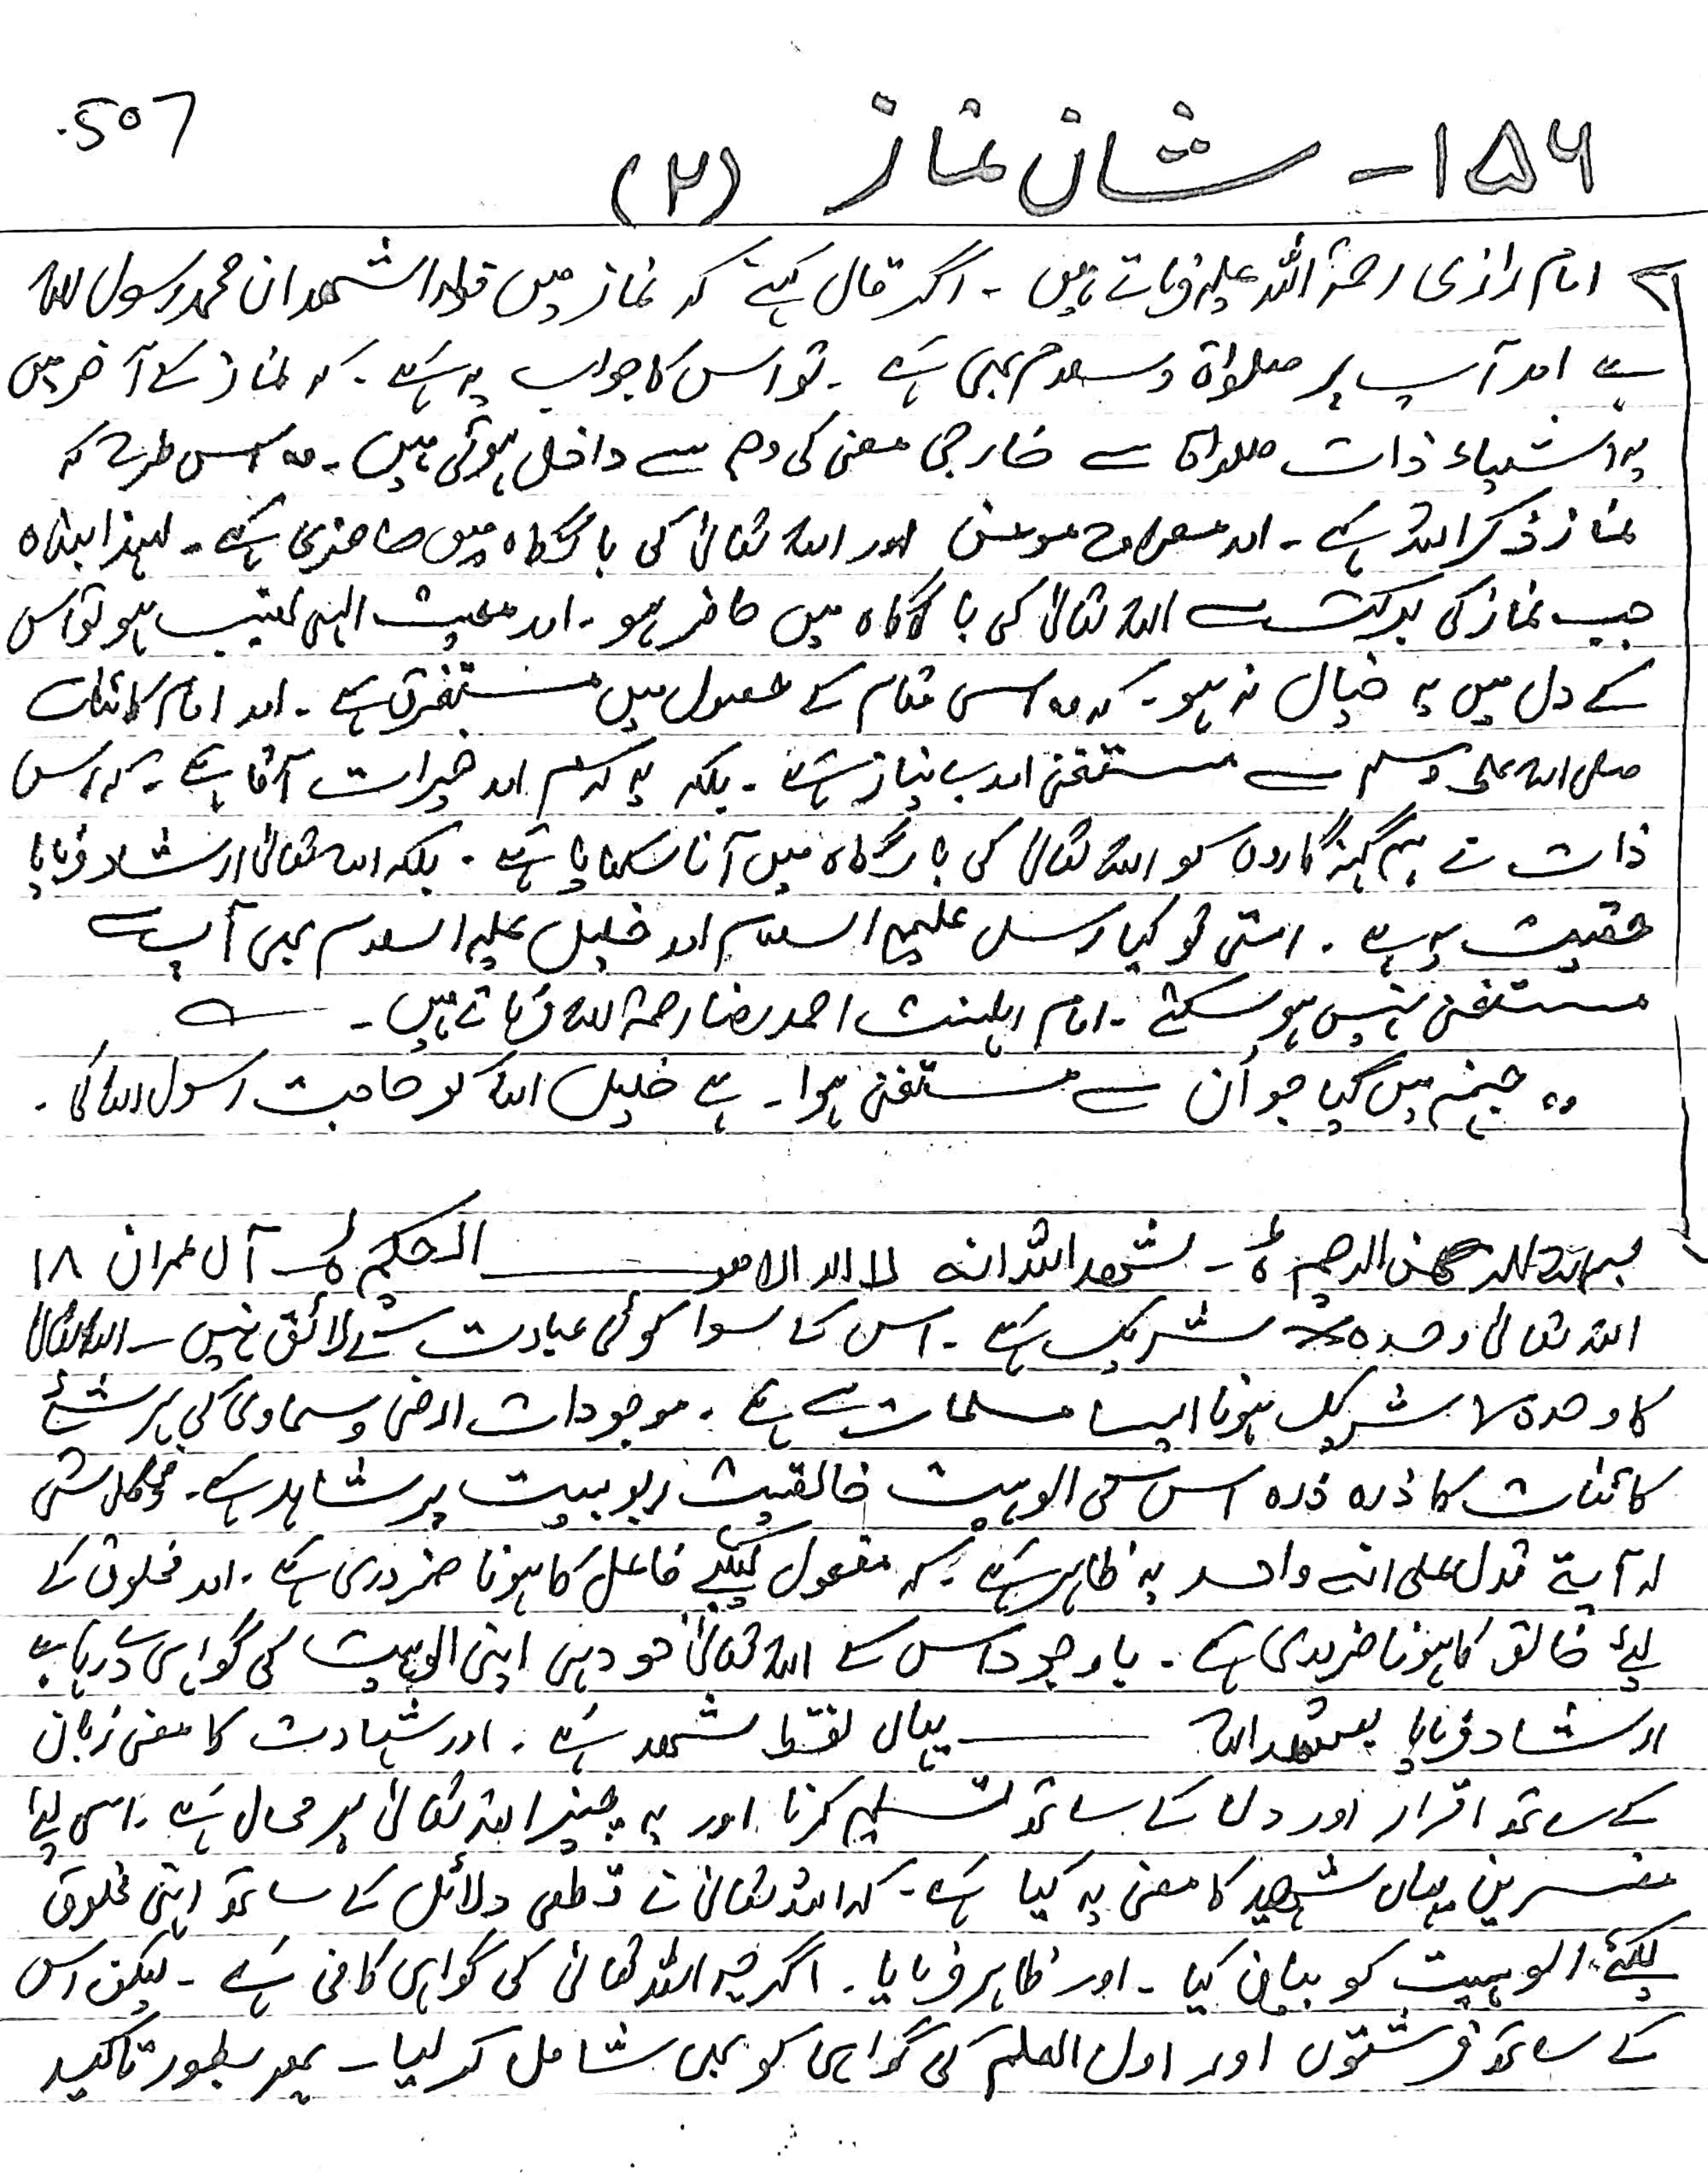 507
۱۵۶ - شان نماز (۲)
امام رازی رحمۃ اللہ علیہ فرماتے ہیں ۔ اگر قال کہے کہ نماز میں قولہ اشھد ان محمد رسول اللہ
ہے اور آپ پر صلواۃ و سلام بھی ہے ۔ تو اس کا جواب یہ ہے ۔ کہ نماز کے آخر میں
یہ اشیاء ذات صلواۃ سے خارجی معنی کی وجہ سے داخل ہوئی ہیں ۔ وہ اس طرح کہ
نماز ذکر اللہ ہے ۔ اور معراج مومنین اور اللہ تعالیٰ کی بارگاہ میں حاضری ہے ۔ لہذا بندہ
جب نماز کی برکت سے اللہ تعالیٰ کی بارگاہ میں حاضر ہو ۔ اور معیت الہی نصیب ہو تو اس
کے دل میں یہ خیال نہ ہو ۔ کہ وہ اس مقام کے حصول میں مستغرق ہے ۔ اور امام کائنات
صلی اللہ علیہ وسلم سے مستغنی اور بے نیاز ہے ۔ بلکہ یہ کرم اور خیرات آقا ہے ۔ کہ اس
ذات نے ہم گنہگاروں کو اللہ تعالیٰ کی بارگاہ میں آنا سکھایا ہے ۔ بلکہ اللہ تعالیٰ ارشاد فرمایا
حقیقت یہ ہے ۔ امتی تو کیا رسل علیہم السلام اور خلیل علیہ السلام بھی آپ سے
مستغنی نہیں ہو سکتے ۔ امام اہلسنت احمد رضا رحمۃ اللہ فرماتے ہیں ۔
وہ جہنم میں گیا جو اُن سے مستغنی ہوا ۔ ہے خلیل اللہ کو حاجت رسول اللہ کی ۔
بسم اللہ الرحمن الرحیم ۔ شھد اللہ انہ لا الہ الا ھو ــــــ الحکیم آل عمران ۱۸
اللہ تعالیٰ وحدہ لا شریک ہے ۔ اس کے سوا کوئی عبادت کے لائق نہیں ۔ اللہ تعالیٰ
کا وحدہ لا شریک ہونا ایسا مسلمات سے ہے ۔ موجودات ارضی و سماوی کی ہر شئے
کائنات کا ذرہ ذرہ اس کی الوہیت خالقیت ربوبیت پر شاہد ہے ۔ فی کل شئی
لہ آیۃ تدل علی انہ واحد یہ ظاہر ہے ۔ کہ مفعول کیلئے فاعل کا ہونا ضروری ہے ۔ اور مخلوق کے
لئے خالق کا ہونا ضروری ہے ۔ باوجود اس کے اللہ تعالیٰ خود ہی اپنی الوہیت کی گواہی دے رہا ہے
ارشاد فرمایا شھد اللہ ــــــ یہاں لفظ شھد ہے ۔ اور شہادت کا معنی زبان
کے ساتھ اقرار اور دل کے ساتھ تسلیم کرنا اور یہ چیز اللہ تعالیٰ پر محال ہے ۔ اسی لئے
مفسرین یہاں شھد کا معنی یہ کیا ہے ۔ کہ اللہ تعالیٰ نے قطعی دلائل کے ساتھ اپنی مخلوق
کیلئے الوہیت کو بیان کیا ۔ اور ظاہر فرمایا ۔ اگرچہ اللہ تعالیٰ کی گواہی کافی ہے ۔ لیکن اس
کے ساتھ فرشتوں اور اول العلم کی گواہی کو بھی شامل کر لیا ۔ پھر بطور تاکید